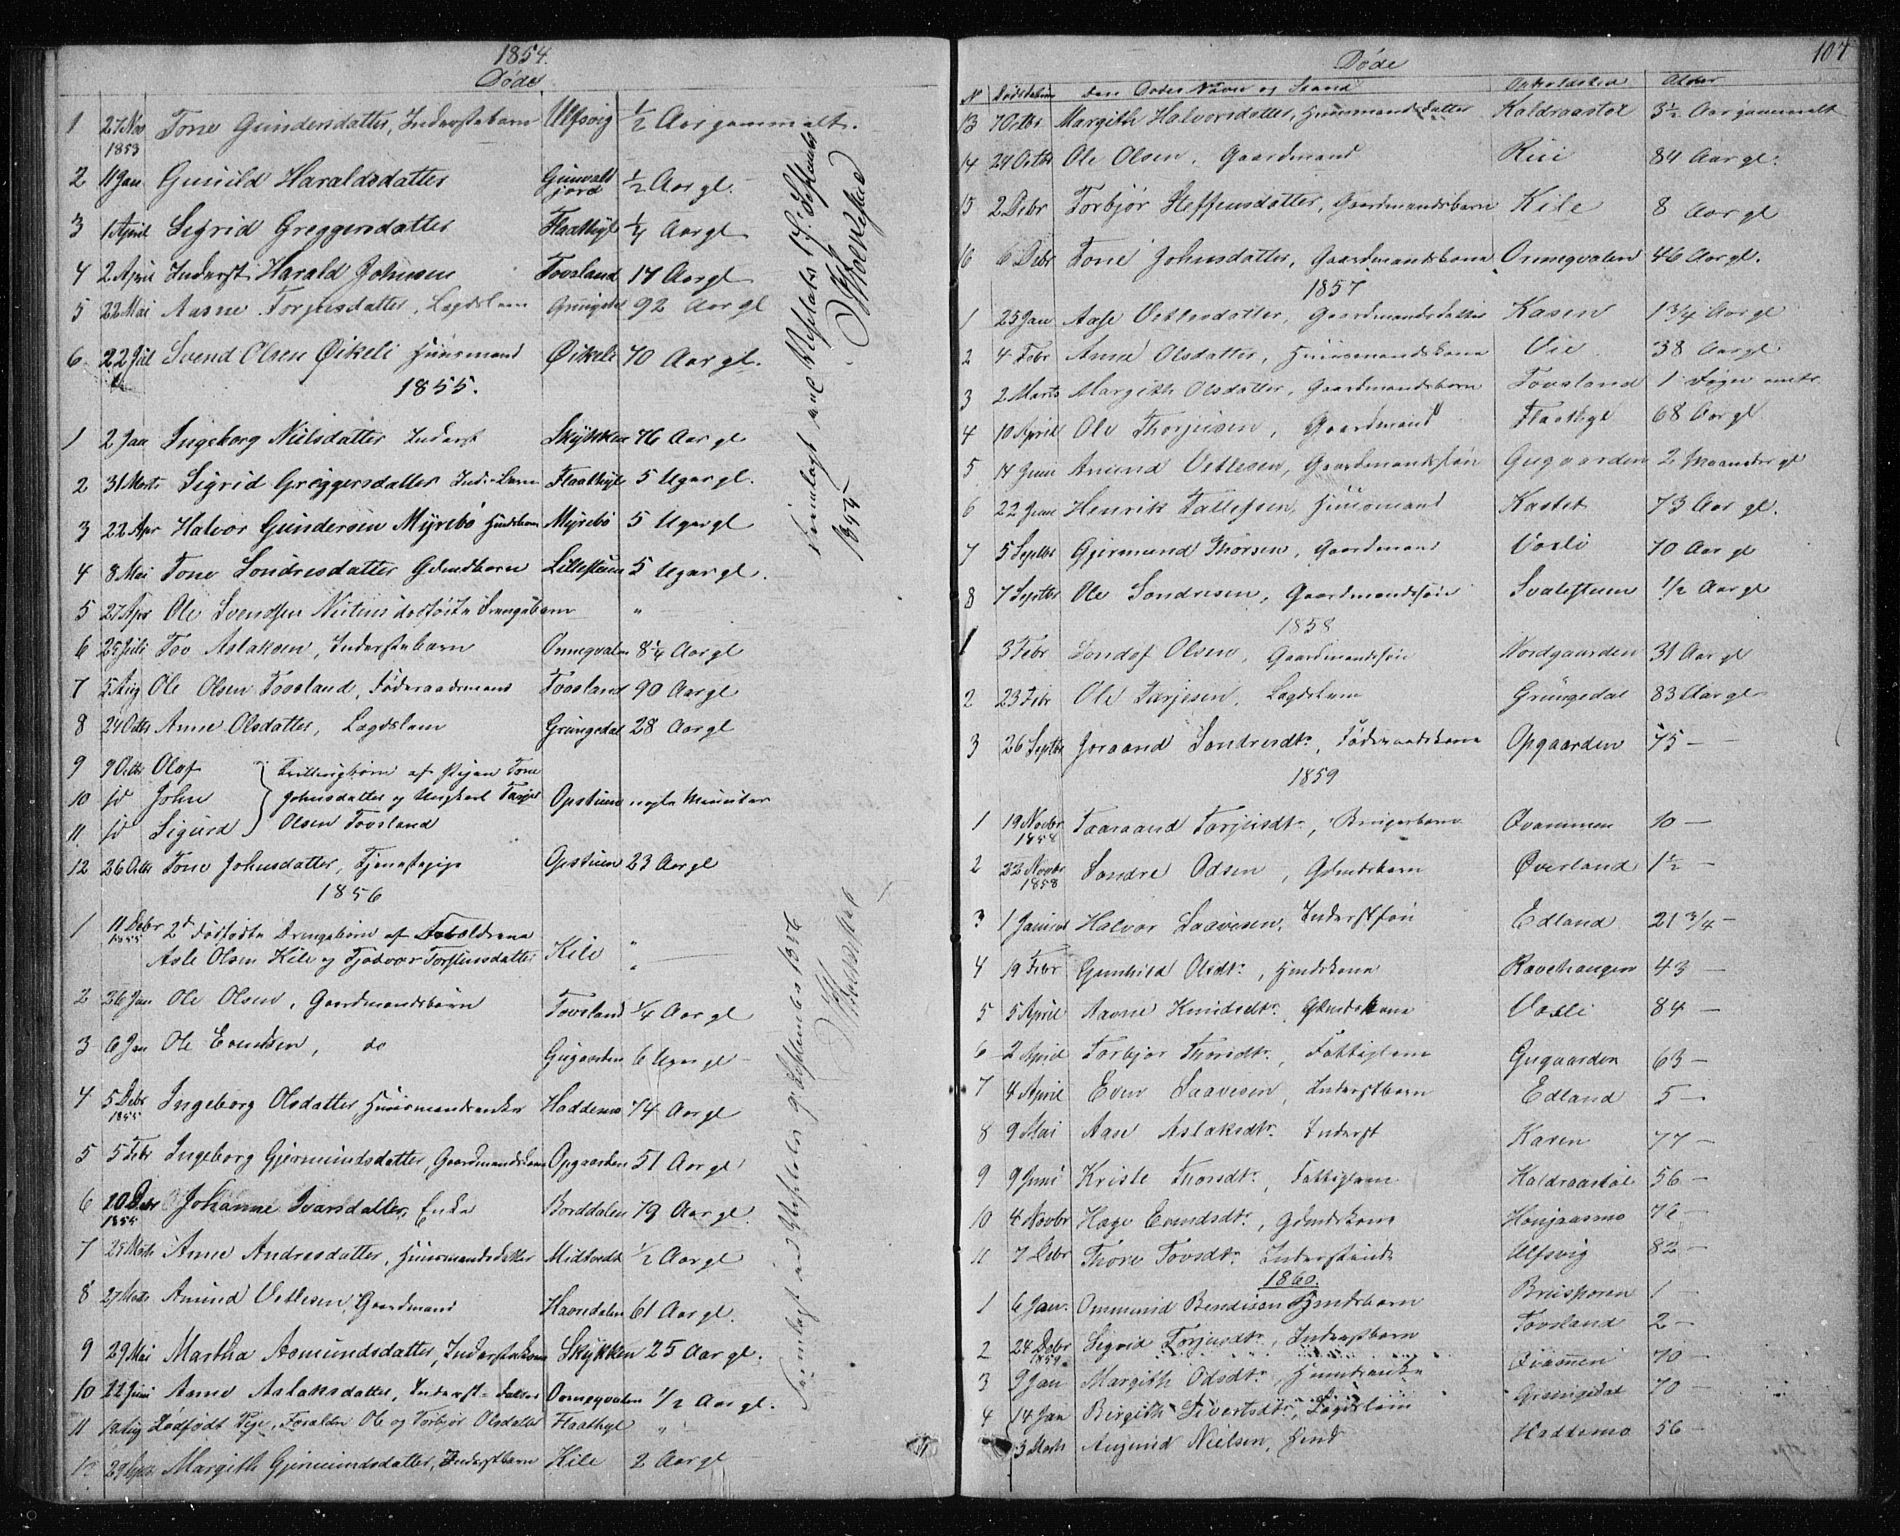 1854.
Døde
1 27 Nov 1853 Tone Gundersdatter, Inderstebarn Ulfsvig ½ Aar gammelt.
2 11 Jan Gunild Haraldsdatter Gunvaldjord ½ Aar gl.
3 1 April Sigrid Greggersdatter Flaathyl ¼ Aar gl
4 2 April Inderst Harald Johnsen Tovsland 17 Aar gl
5 22 Mai Aasne Torjusdatter, Lægdslem Grungedal 92 Aar gl
6 22 Juli Svend Olsen Øikeli Huusmand Øikeli 70 Aar gl.
1855.
1 2 Jan Ingeborg Nielsdatter Inderst Skykken 76 Aar gl
2 31 Marts Sigrid Greggersdatter Inderstbarn Flaathyl 5 Uger gl.
3 22 Apr Halvor Gundersen Myrebø Huusbarn Myrebø 5 Uger gl
4 8 Mai Tone Sondresdatter Gdmdbarn Lillestuen 5 Uger gl.
5 27 Apr Ole Svendsen dødfødte Drengebarn "
6 25 Juli Tov Aslaksen, Inderstebarn Onneqvalen 8¼ Aar gl
7 5 Aug Ole Olsen Tovsland, Føderaadsmand Tovsland 90 Aar gl
8 24 Octb Anne Olsdatter, Lægdslem Grungedal 28 Aar gl
9 9 Octb Olaf } Trillingbørn af Pigen Tone
10 id John } Johnsdatter og Ungkarl Torjus Opstuen nogle Minuter
11 id Sigurd } Olsen Tovsland
12 26 Octb Tone Johnsdatter, Tjenestepige Opstuen 23 Aar gl
1856
1 11 Debr 1855 2de dødfødte Drengebørn af Forældrene
Asle Olsen Kile og Tjodvor Torstensdatter Kile "
2 26 Jan Ole Olsen, Gaardmandsbarn Tovsland ¼ Aar gl
3 6 Jan Ole Evensen, do Gugaarden 6 Uger gl
4 5 Debr 1855 Ingeborg Olsdatter Huusmandsenke Haddemo 74 Aar gl
5 5 Febr Ingeborg Gjermundsdatter, Gaardmandskone Opgaarden 51 Aar gl
6 20 Debr 1855 Johanne Ivarsdatter, Enke Borddalen 79 Aar gl
7 25 Marts Anne Andresdatter, Huusmandsdatter Midtvedt ½ Aar gl
8 27 Marts Amund Vetlesen, Gaardmand Havredalen 61 Aar gl.
9 29 Mai Martha Asmundsdatter, Inderstekone Skykken 25 Aar gl.
10 22 Juni Aasne Aslaksdatter, Inderst-Datter Onneqvalen ½ Aar gl.
11 19 Aug Dødfødt Pige, Forældre Ole og Torbjør Olsdatter Flaathyl "
12 29 Septb Margith Gjermundsdatter, Inderstbarn Kile 2 Aar gl
Fremlagt ved Visitats 17 September
1855
Fremlagt ved Visitats 9 September 1856
Døde 107
N Dødsdatum den Dødes Navn og Stand Opholdssted Alder
13 7 Octbr Margith Halvorsdatter, Huusmandsdatter Kaldraastøl 3½ Aar gammelt
14 24 Octbr Ole Olsen, Gaardmand Rui 84 Aar gl.
15 2 Debr Torbjør Steffensdatter, Gaardmandsbarn Kile 8 Aar gl
16 6 Debr Tone Johnsdatter, Gaardmandskone Onneqvalen 46 Aar gl.
1857
1 25 Jan Aase Vetlesdatter, Gaardmandsdatter Kasen 1¾ Aar gl
2 4 Febr Anne Olsdatter, Huusmandskone Vie 38 Aar gl
3 2 Marts Margith Olsdatter, Gaardmandsbarn Tovsland 1 Døgn
4 10 April Ole Thorjusen, Gaardmand Flaathyl 68 Aar gl
5 14 Juni Amund Vetlesen, Gaardmandssøn Gugaarden 2 Maaneder gl
6 22 Juni Henrik Tallefsen, Huusmand Kastet 73 Aar gl.
7 5 Septbr Gjermund Thorsen, Gaardmand Vaali 70 Aar gl
8 7 Septbr Ole Sondresen, Gaardmandssøn Svalestuen ½ Aar gl
1858
1 3 Febr Sondof Olsen, Gaardmandssøn Nordgaarden 31 Aar gl
2 23 Febr Ole Tarjesen, Lægdslem Grungedal 83 Aar gl
3 26 Septbr Joraand Sondresdtr, Føderaadskone Opgaarden 75 —
1859
1 19 Novbr 1858 Taaraand Torjusdtr, Brugerbarn Qvammen 10 —
2 22 Novbr 1858 Sondre Odsen, Gdmdsbarn Øverland 1½ —
3 1 Januar Halvor Saavesen, Inderstsøn Edland 21¾ —
4 19 Febr Gunhild Olsdtr, Hmdskone Ravehaugen 43 —
5 5 April Aasne Knudsdtr, Gdmdskone Vaali 84 —
6 2 April Torbjør Thorsdtr, Fattiglem Gugaarden 63 —
7 4 April Even Saavesen, Inderstbarn Edland 5 —
8 9 Mai Aase Aslaksdtr. Inderst Karen 77 —
9 9 Juni Kristi Thorsdtr, Fattiglem Kaldraastøl 56 —
10 4 Novbr Hæge Evindsdtr, Gdmdskone Haugaasmo 72 —
11 7 Debr Thone Tovsdtr Inderstenke Ulfsvig 82 —
1860.
1 6 Jan. Ommund Bendixsen Hmdsbarn Bruisporen 1 —
2 24 Debr 1859 Sigrid Torjusdtr, Inderstbarn Tovsland 2 —
3 9 Jan Margith Odsdtr, Huusmdsenke Qvammen 70 —
4 14 Jan Birgith Sivertsdtr, Lægdslem Grungedal 70 —
5 Marts Aasmund Nielsen, Hmd Haddemo 56 —